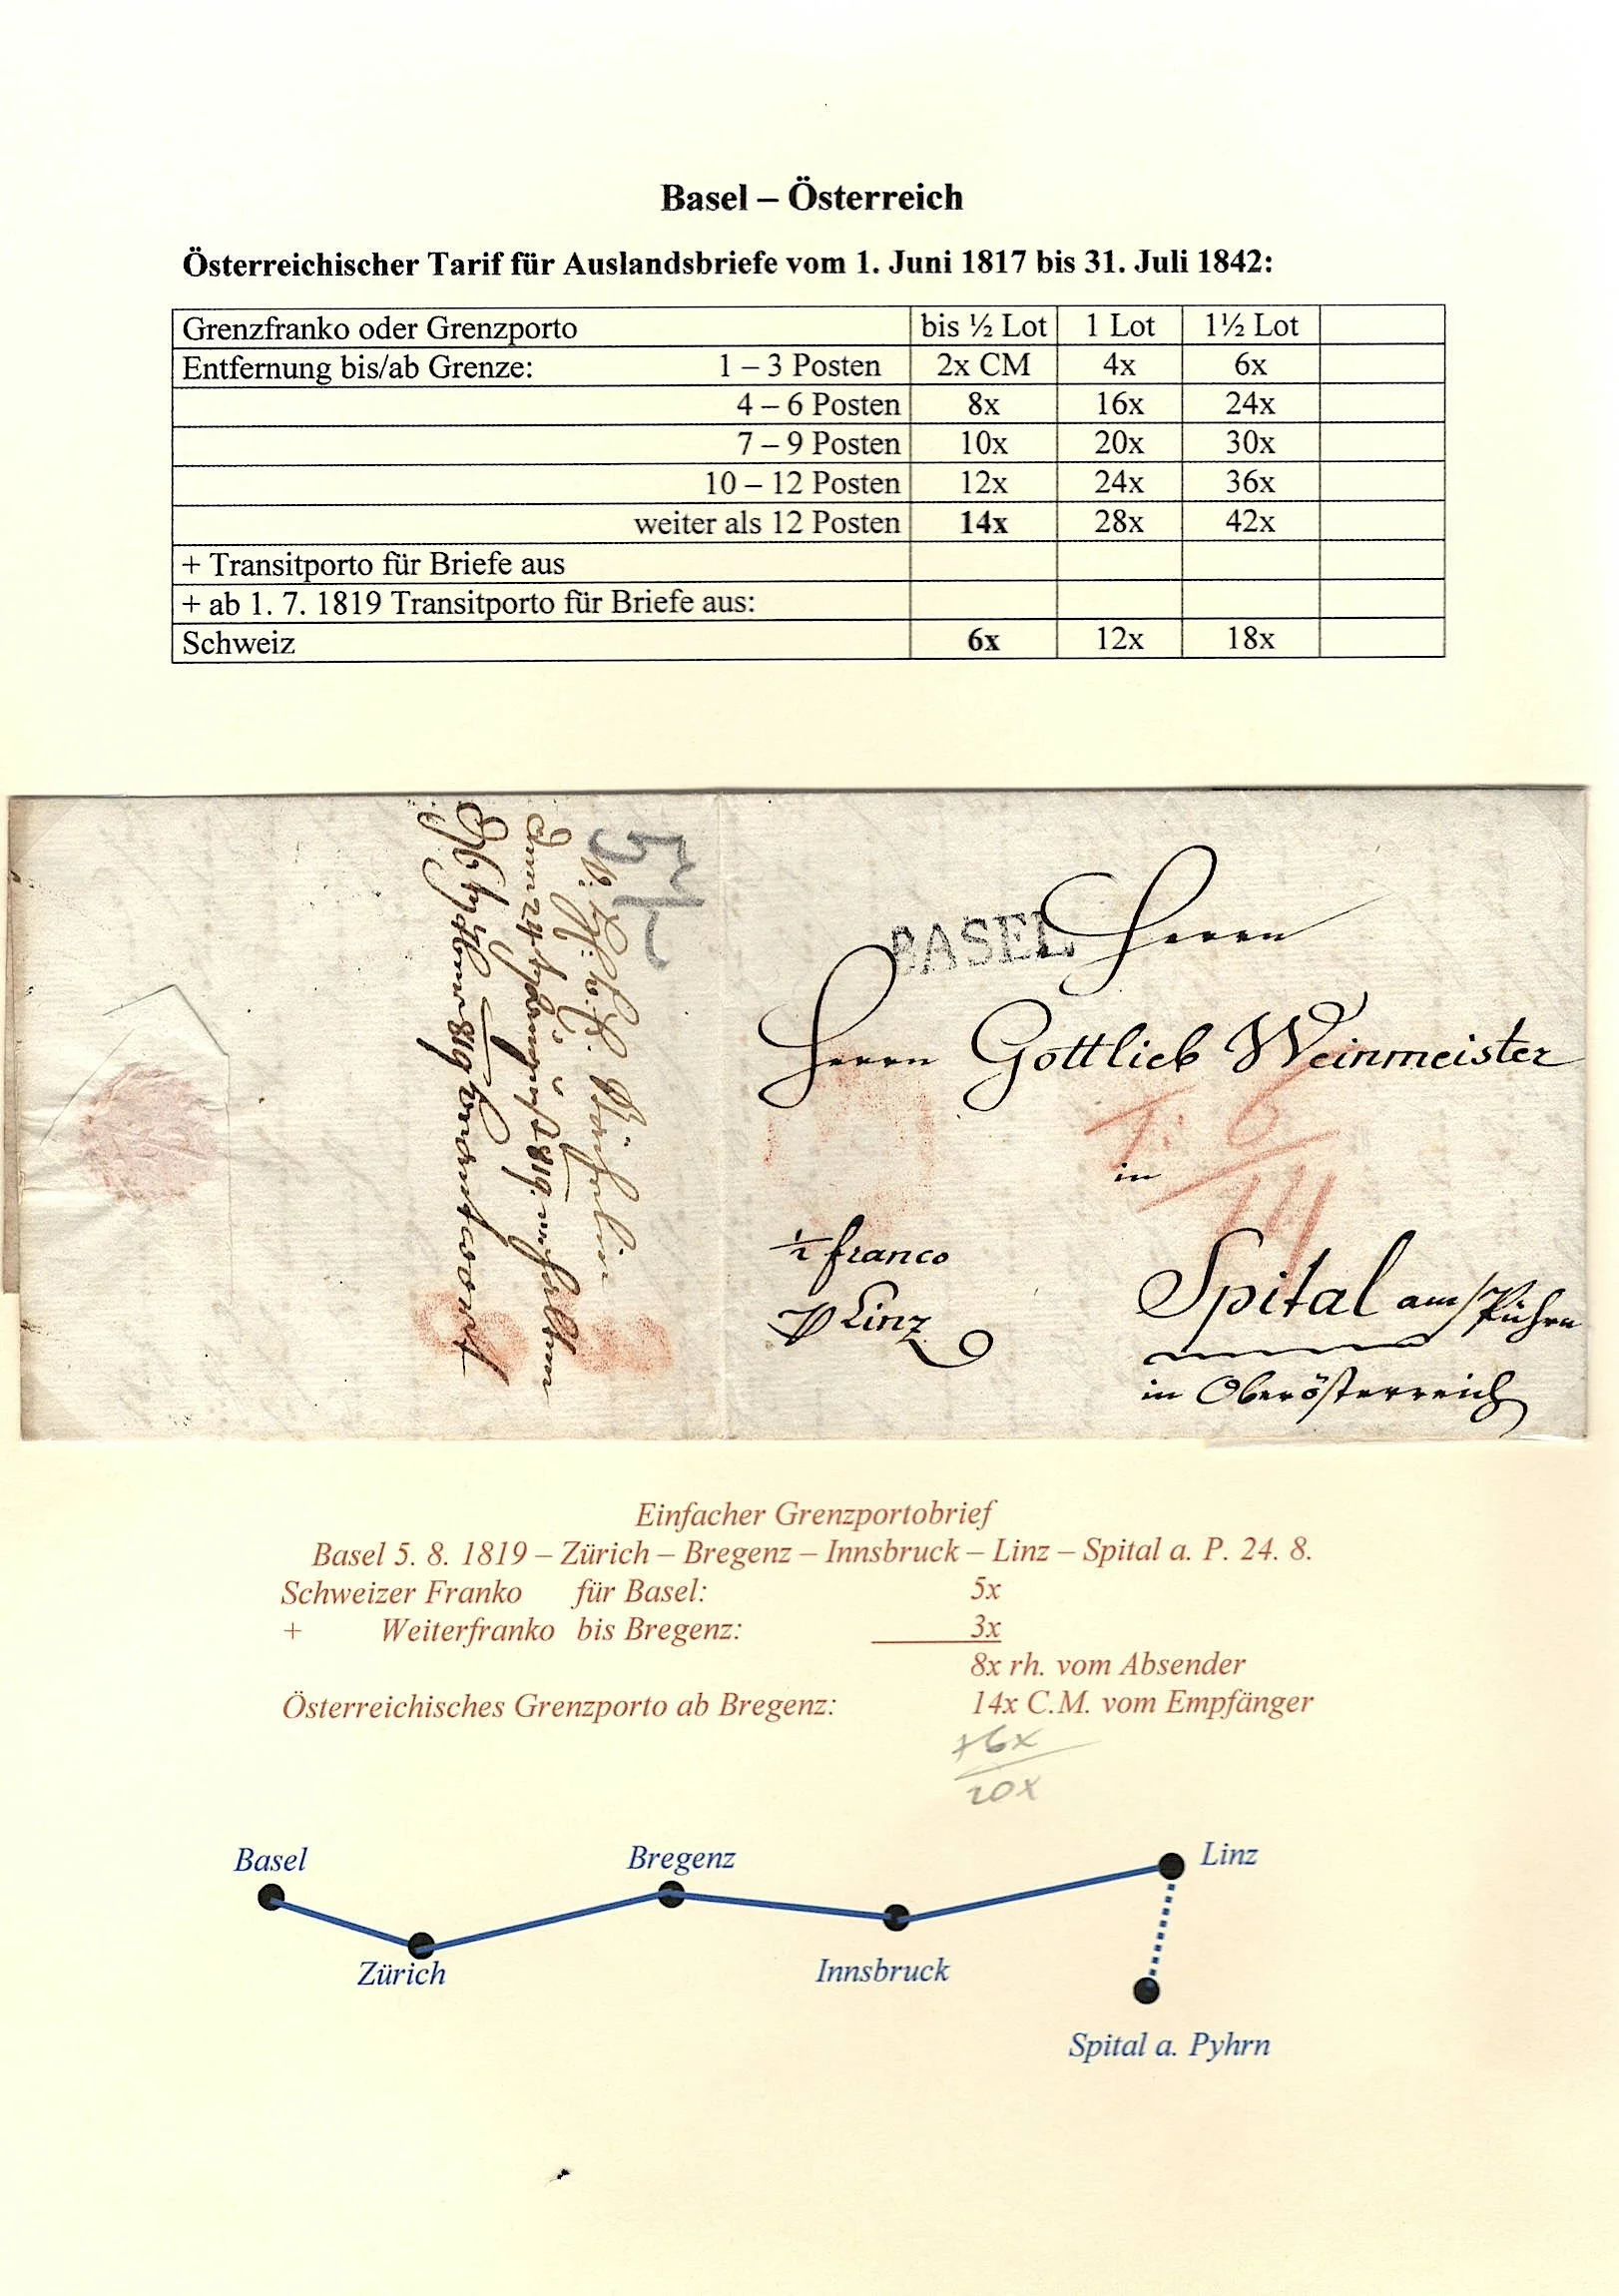 Basel – Österreich
Österreichischer Tarif für Auslandsbriefe vom 1. Juni 1817 bis 31. Juli 1842:
Grenzfranko oder Grenzporto bis ½ Lot 1 Lot 1½ Lot
Entfernung bis/ab Grenze: 1 – 3 Posten 2x CM 4x 6x
4 – 6 Posten 8x 16x 24x
7 – 9 Posten 10x 20x 30x
10 – 12 Posten 12x 24x 36x
weiter als 12 Posten 14x 28x 42x
+ Transitporto für Briefe aus
+ ab 1. 7. 1819 Transitporto für Briefe aus:
Schweiz 6x 12x 18x
BASEL
Herrn
Herrn Gottlieb Weinmeister
T: 6
14
in
½ franco
Linz
Spital am/Pühрn
in Oberösterreich
Einfacher Grenzportobrief
Basel 5. 8. 1819 – Zürich – Bregenz – Innsbruck – Linz – Spital a. P. 24. 8.
Schweizer Franko für Basel: 5x
+ Weiterfranko bis Bregenz: 3x
8x rh. vom Absender
Österreichisches Grenzporto ab Bregenz: 14x C.M. vom Empfänger
+6x
20x
Basel
Bregenz
Linz
Zürich
Innsbruck
Spital a. Pyhrn